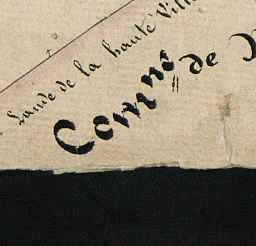 Lande de la haute Ville
Comne de